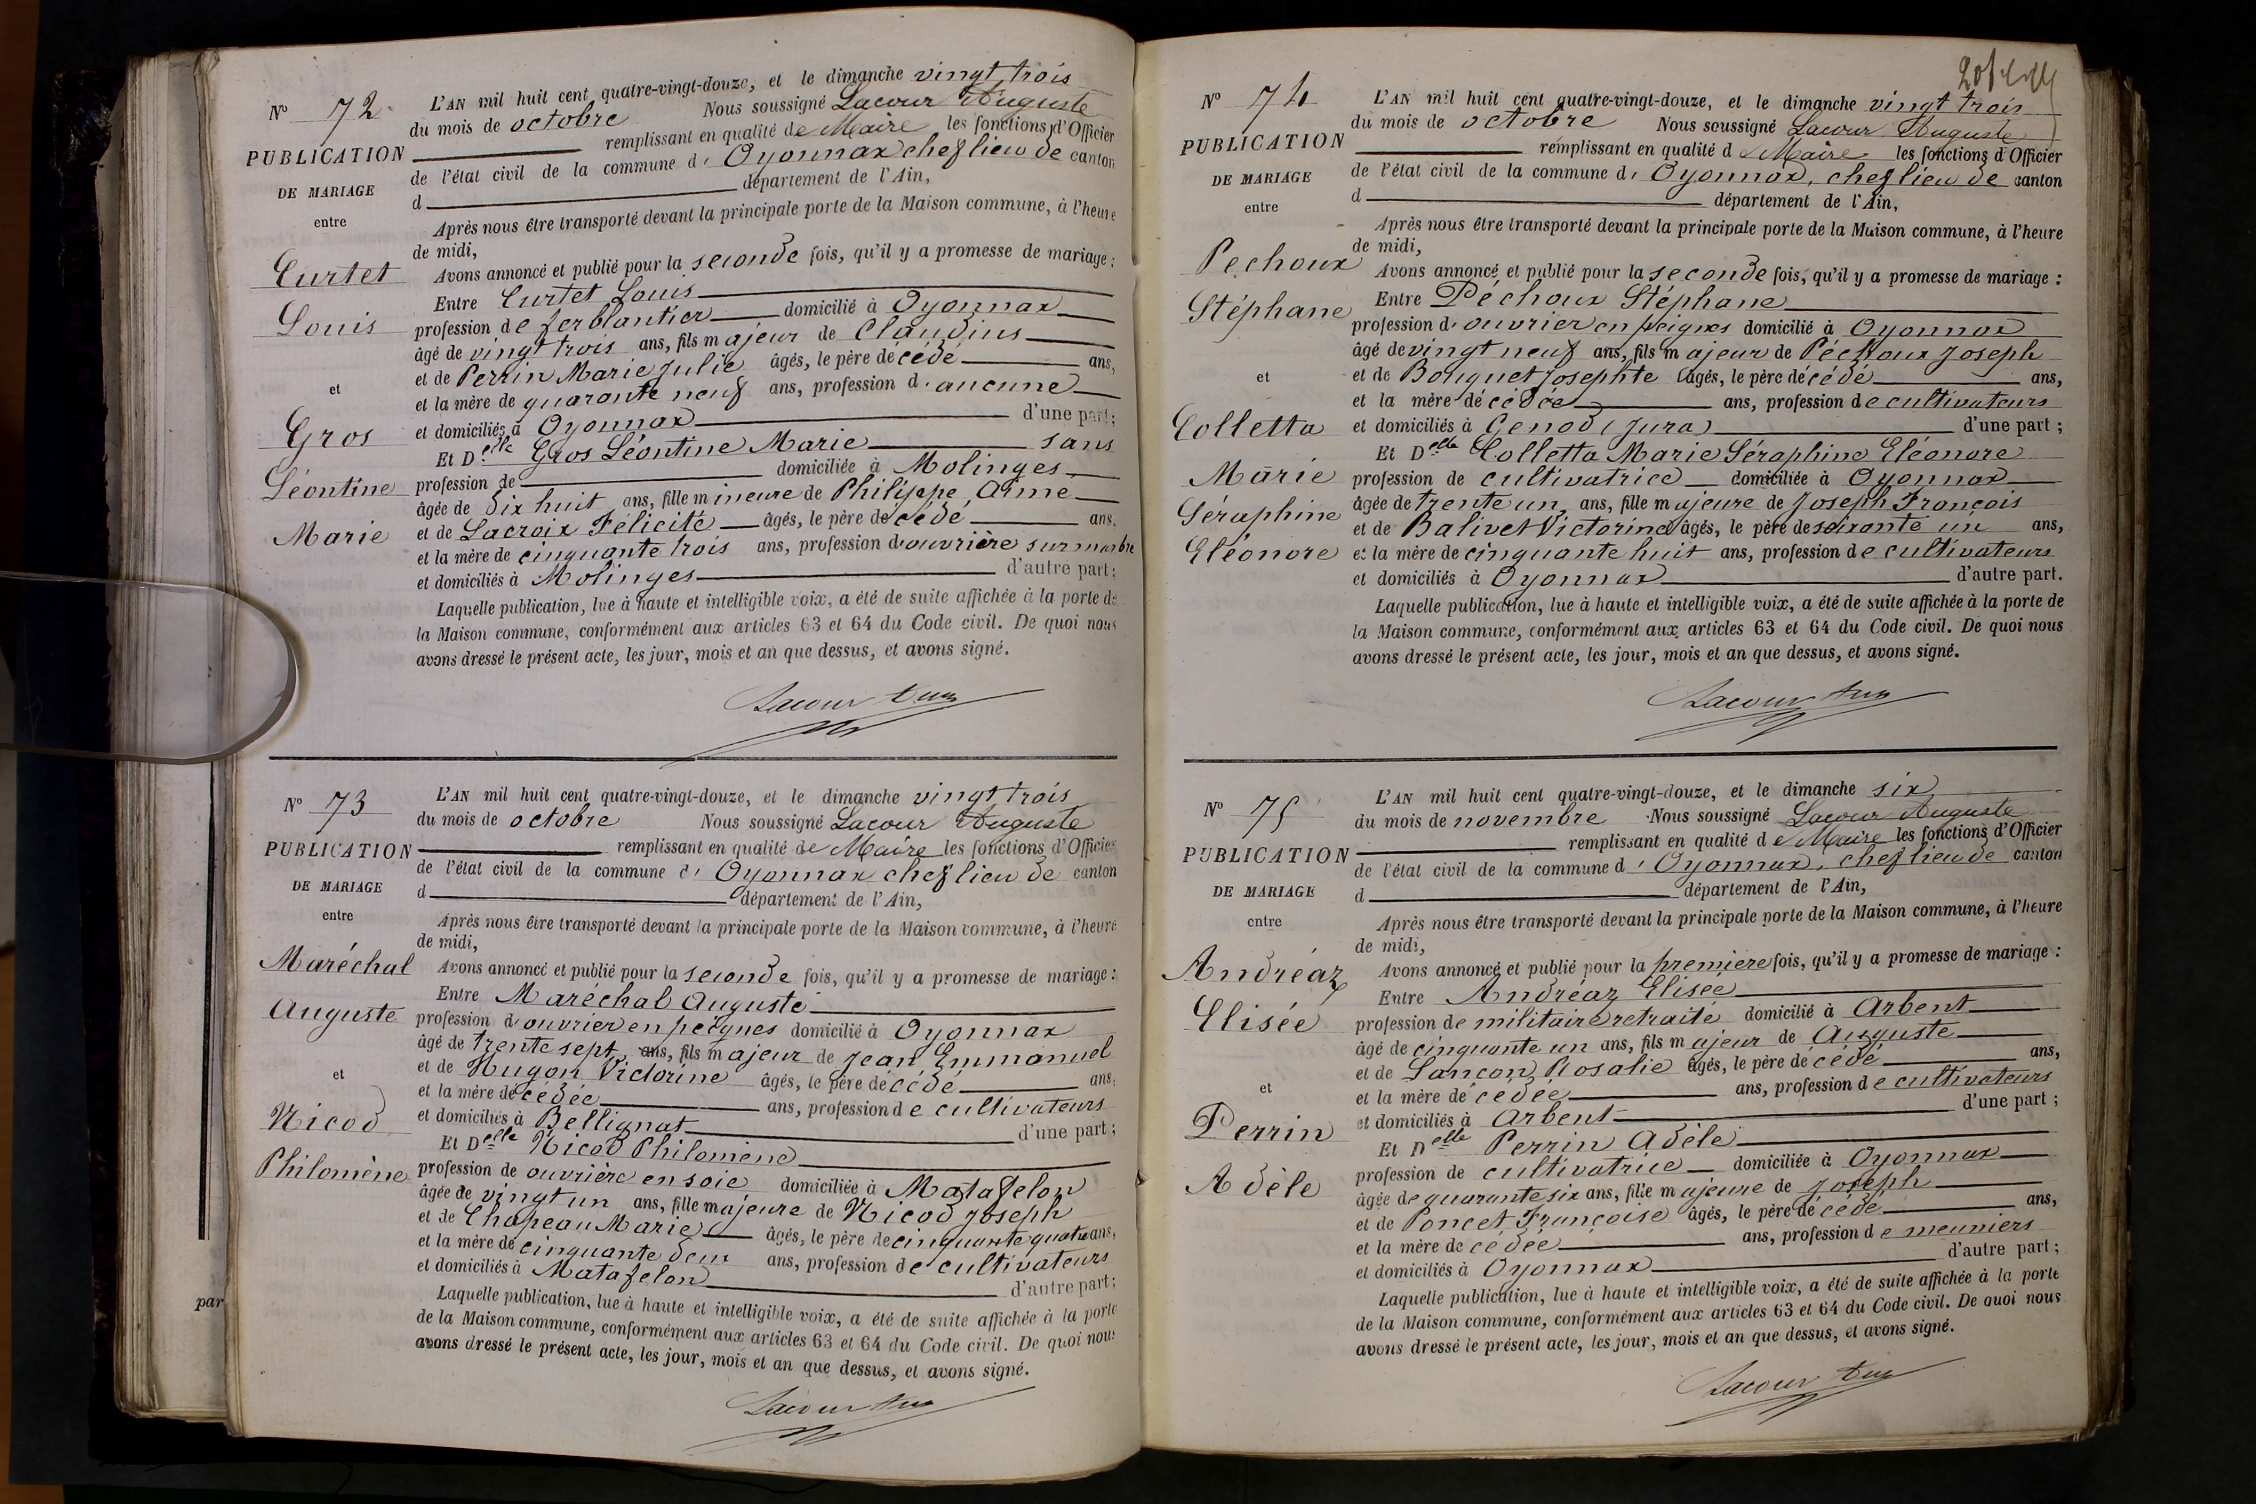 N° 72
PUBLICATION
DE MARIAGE
entre
Curtet
Louis
et
Gros
Léontine
Marie
L'AN mil huit cent quatre-vingt-douze, et le dimanche vingt trois
du mois de octobre Nous soussigné Lacour Auguste
remplissant en qualité de Maire les fonctions d'Officier
de l'état civil de la commune d' Oyonnax chef lieu de canton
d département de l'Ain,
Après nous être transporté devant la principale porte de la Maison commune, à l'heure
de midi,
Avons annoncé et publié pour la seconde fois, qu'il y a promesse de mariage :
Entre Curtet Louis
profession de ferblantier domicilié à Oyonnax
âgé de vingt trois ans, fils majeur de Claudius
et de Perrin Marie Julie âgés, le père décédé ans,
et la mère de quarante neuf ans, profession d' aucune
et domiciliés à Oyonnax d'une part ;
Et Delle Gros Léontine Marie sans
profession de domiciliée à Molinges
âgée de dix huit ans, fille mineure de Philippe, Aimé
et de Lacroix Félicité âgés, le père décédé ans,
et la mère de cinquante trois ans, profession d'ouvrière sur marbre
et domiciliés à Molinges d'autre part ;
Laquelle publication, lue à haute et intelligible voix, a été de suite affichée à la porte de
la Maison commune, conformément aux articles 63 et 64 du Code civil. De quoi nous
avons dressé le présent acte, les jour, mois et an que dessus, et avons signé.
Lacour Aug
N° 73
PUBLICATION
DE MARIAGE
entre
Maréchal
Auguste
et
Nicod
Philomène
L'AN mil huit cent quatre-vingt-douze, et le dimanche vingt trois
du mois de octobre Nous soussigné Lacour Auguste
remplissant en qualité de Maire les fonctions d'Officier
de l'état civil de la commune d' Oyonnax chef lieu de canton
d département de l'Ain,
Après nous être transporté devant la principale porte de la Maison commune, à l'heure
de midi,
Avons annoncé et publié pour la seconde fois, qu'il y a promesse de mariage :
Entre Maréchal Auguste
profession d'ouvrier en peignes domicilié à Oyonnax
âgé de trente sept ans, fils majeur de Jean Emmanuel
et de Hugon Victorine âgés, le père décédé ans,
et la mère décédée ans, profession de cultivateurs
et domiciliés à Bellignat d'une part ;
Et Delle Nicod Philomène
profession de ouvrière en soie domiciliée à Matafelon
âgée de vingt un ans, fille majeure de Nicod Joseph
et de Chapeau Marie âgés, le père de cinquante quatre ans,
et la mère de cinquante deux ans, profession de cultivateurs
et domiciliés à Matafelon d'autre part ;
Laquelle publication, lue à haute et intelligible voix, a été de suite affichée à la porte
de la Maison commune, conformément aux articles 63 et 64 du Code civil. De quoi nous
avons dressé le présent acte, les jour, mois et an que dessus, et avons signé.
Lacour Aug
par
N° 74
PUBLICATION
DE MARIAGE
entre
Pechoux
Stéphane
et
Colletta
Marie
Séraphine
Eléonore
L'AN mil huit cent quatre-vingt-douze, et le dimanche vingt trois
du mois de octobre Nous soussigné Lacour Auguste
remplissant en qualité de Maire les fonctions d'Officier
de l'état civil de la commune d' Oyonnax, chef lieu de canton
d département de l'Ain,
Après nous être transporté devant la principale porte de la Maison commune, à l'heure
de midi,
Avons annoncé et publié pour la seconde fois, qu'il y a promesse de mariage :
Entre Péchoux Stéphane
profession d'ouvrier en peignes domicilié à Oyonnax
âgé de vingt neuf ans, fils majeur de Péchoux Joseph
et de Bouquet Josephte âgés, le père décédé ans,
et la mère décédée ans, profession de cultivateurs
et domiciliés à Genod (Jura) d'une part ;
Et Delle Colletta Marie Séraphine Eléonore
profession de cultivatrice domiciliée à Oyonnax
âgée de trente un ans, fille majeure de Joseph François
et de Balivet Victorine âgés, le père de soixante un ans,
et la mère de cinquante huit ans, profession de cultivateurs
et domiciliés à Oyonnax d'autre part.
Laquelle publication, lue à haute et intelligible voix, a été de suite affichée à la porte de
la Maison commune, conformément aux articles 63 et 64 du Code civil. De quoi nous
avons dressé le présent acte, les jour, mois et an que dessus, et avons signé.
Lacour Aug
N° 75
PUBLICATION
DE MARIAGE
entre
Andréaz
Elisée
et
Perrin
Adèle
L'AN mil huit cent quatre-vingt-douze, et le dimanche six
du mois de novembre Nous soussigné Lacour Auguste
remplissant en qualité de Maire les fonctions d'Officier
de l'état civil de la commune d' Oyonnax, chef lieu de canton
d département de l'Ain,
Après nous être transporté devant la principale porte de la Maison commune, à l'heure
de midi,
Avons annoncé et publié pour la première fois, qu'il y a promesse de mariage :
Entre Andréaz Elisée
profession de militaire retraité domicilié à Arbent
âgé de cinquante un ans, fils majeur de Auguste
et de Lançon Rosalie âgés, le père décédé ans,
et la mère décédée ans, profession de cultivateurs
et domiciliés à Arbent d'une part ;
Et Delle Perrin Adèle
profession de cultivatrice domiciliée à Oyonnax
âgée de quarante six ans, fille majeure de Joseph
et de Poncet Françoise âgés, le père décédé ans,
et la mère décédée ans, profession de meuniers
et domiciliés à Oyonnax d'autre part ;
Laquelle publication, lue à haute et intelligible voix, a été de suite affichée à la porte
de la Maison commune, conformément aux articles 63 et 64 du Code civil. De quoi nous
avons dressé le présent acte, les jour, mois et an que dessus, et avons signé.
Lacour Aug